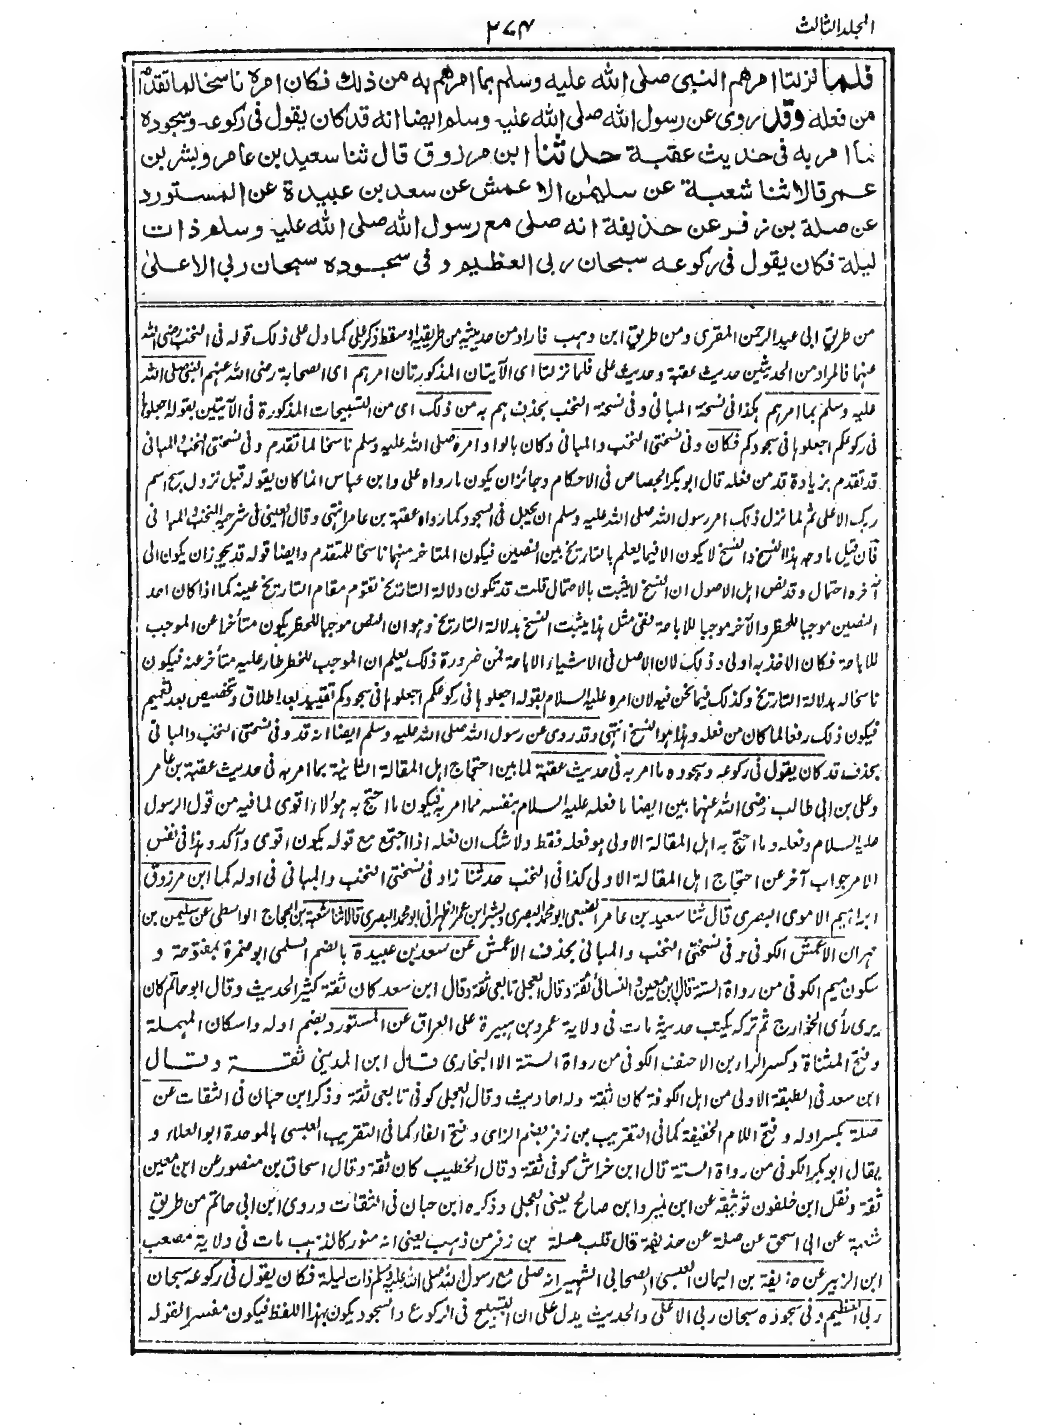 المجلد الثالث
٢٧٤
فلما نزلتا امرهم النبى صلى الله عليه وسلم بما امرهم به من ذلك فكان امره ناسخا لما تقدم
من فعله وقد روى عن رسول الله صلى الله عليه وسلم ايضا انه قد كان يقول فى ركوعه وسجوده
ما امر به فى حديث عقبة حدثنا ابن مرزوق قال ثنا سعيد بن عامر وبشر بن
عمر قالا ثنا شعبة عن سليمن الاعمش عن سعد بن عبيدة عن المستورد
عن صلة بن زفر عن حذيفة انه صلى مع رسول الله صلى الله عليه وسلم ذات
ليلة فكان يقول فى ركوعه سبحان ربى العظيم وفى سجوده سبحان ربى الاعلى
من طريق ابى عبد الرحمن المقرى ومن طريق ابن وهب فاراد من حديثيه من طريقيه او سقط ذكر على كما دل على ذلك قوله فى النخب رضى الله
عنهما فالمراد من الحديثين حديث عقبة وحديث على فلما نزلتا اى الآيتان المذكورتان امرهم اى الصحابة رضى الله عنهم النبى صلى الله
عليه وسلم بما امرهم هكذا فى نسخة المبانى وفى نسخة النخب بحذف هم به من ذلك اى من التسبيحات المذكورة فى الآيتين بقوله اجعلوها
فى ركوعكم اجعلوها فى سجودكم فكان وفى نسختى النخب والمبانى وكان بالواو امره صلى الله عليه وسلم ناسخا لما تقدم وفى نسختى النخب والمبانى
قد تقدم بزيادة قد من فعله قال ابو بكر الجصاص فى الاحكام وجائز ان يكون ما رواه على وابن عباس انما كان يقوله قبل نزول سبح اسم
ربك الاعلى ثم لما نزل ذلك امر رسول الله صلى الله عليه وسلم ان يجعل فى السجود كما رواه عقبة بن عامر انتهى وقال العينى فى شرحيه النخب والمبانى
فان قيل ما وجه هذا النسخ والنسخ لا يكون الا فيما يعلم بالتاريخ بين النصين فيكون المتاخر منهما ناسخا للمتقدم وايضا قوله قد يجوز ان يكون الى
آخره احتمال وقد نص اهل الاصول ان النسخ لا يثبت بالاحتمال قلت قد تكون دلالة التاريخ تقوم مقام التاريخ عينه كما اذا كان احد
النصين موجبا للحظر والآخر موجبا للاباحة ففى مثل هذا يثبت النسخ بدلالة التاريخ وهو ان النص موجبا للحظر يكون متأخرا عن الموجب
للاباحة فكان الاخذ به اولى وذلك لان الاصل فى الاشياء الاباحة فمن ضرورة ذلك يعلم ان الموجب للحظر طار عليه متأخر عنه فيكون
ناسخا له بدلالة التاريخ وكذلك فيما نحن فيه لان امره عليه السلام بقوله اجعلوها فى ركوعكم اجعلوها فى سجودكم تقييد بعد اطلاق وتخصيص بعد تعميم
فيكون ذلك رفعا لما كان من فعله وهذا هو النسخ انتهى وقد روى عن رسول الله صلى الله عليه وسلم ايضا انه قد وفى نسختى النخب والمبانى
بحذف قد كان يقول فى ركوعه وسجوده ما امر به فى حديث عقبة لما بين احتجاج اهل المقالة الثانية بما امر به فى حديث عقبة بن عامر
وعلى بن ابى طالب رضى الله عنهما بين ايضا ما فعله عليه السلام بنفسه مما امر به فيكون ما احتج به هؤلاء اقوى لما فيه من قول الرسول
عليه السلام وفعله وما احتج به اهل المقالة الاولى هو فعله فقط ولا شك ان فعله اذا اجتمع مع قوله يكون اقوى وآكد وهذا فى نفس
الامر جواب آخر عن احتجاج اهل المقالة الاولى كذا فى النخب حدثنا زاد فى نسختى النخب والمبانى فى اوله كما ابن مرزوق
ابراهيم الاموى البصرى قال ثنا سعيد بن عامر الضبعى ابو محمد البصرى وبشر بن عمر الزهرانى ابو محمد البصرى قالا ثنا شعبة بن الحجاج الواسطى عن سليمن بن
مهران الاعمش الكوفى وفى نسختى النخب والمبانى بحذف الاعمش عن سعد بن عبيدة بالضم السلمى ابو ضمرة بمفتوحة و
سكون ميم الكوفى من رواة الستة قال ابن معين والنسائى ثقة وقال العجلى تابعى ثقة وقال ابن سعد كان ثقة كثير الحديث وقال ابو حاتم كان
يرى رأى الخوارج ثم تركه يكتب حديثه مات فى ولاية عمرو بن هبيرة على العراق عن المستورد بضم اوله واسكان المهملة
وفتح المثناة وكسر الراء بن الاحنف الكوفى من رواة الستة الا البخارى قال ابن المدينى ثقة وقال
ابن سعد فى الطبقة الاولى من اهل الكوفة كان ثقة وله احاديث وقال العجلى كوفى تابعى ثقة وذكر ابن حبان فى الثقات عن
صلة بكسر اوله وفتح اللام الخفيفة كما فى التقريب بن زفر بضم الزاى وفتح الفاء كما فى التقريب العبسى بالموحدة ابو العلاء و
يقال ابو بكر الكوفى من رواة الستة قال ابن خراش كوفى ثقة وقال الخطيب كان ثقة وقال اسحاق بن منصور عن ابن معين
ثقة ونقل ابن خلفون توثيقه عن ابن نمير وابن صالح يعنى العجلى وذكره ابن حبان فى الثقات وروى ابن ابى حاتم من طريق
شعبة عن ابى اسحق عن صلة عن حذيفة قال قلب صلة بن زفر من ذهب يعنى انه منور كالذهب مات فى ولاية مصعب
ابن الزبير عن حذيفة بن اليمان العبسى الصحابى الشهير انه صلى مع رسول الله صلى الله عليه وسلم ذات ليلة فكان يقول فى ركوعه سبحان
ربى العظيم وفى سجوده سبحان ربى الاعلى والحديث يدل على ان التسبيح فى الركوع والسجود يكون بهذا اللفظ فيكون مفسرا لقوله